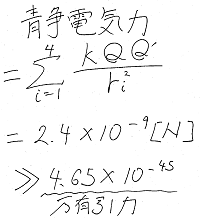 青争電気力
= \sum_{i=1}^{4} \frac{kQQ'}{r_i^2}
= 2.4 × 10^{-9} [N]
≫ 4.65 × 10^{-45}
万有引力